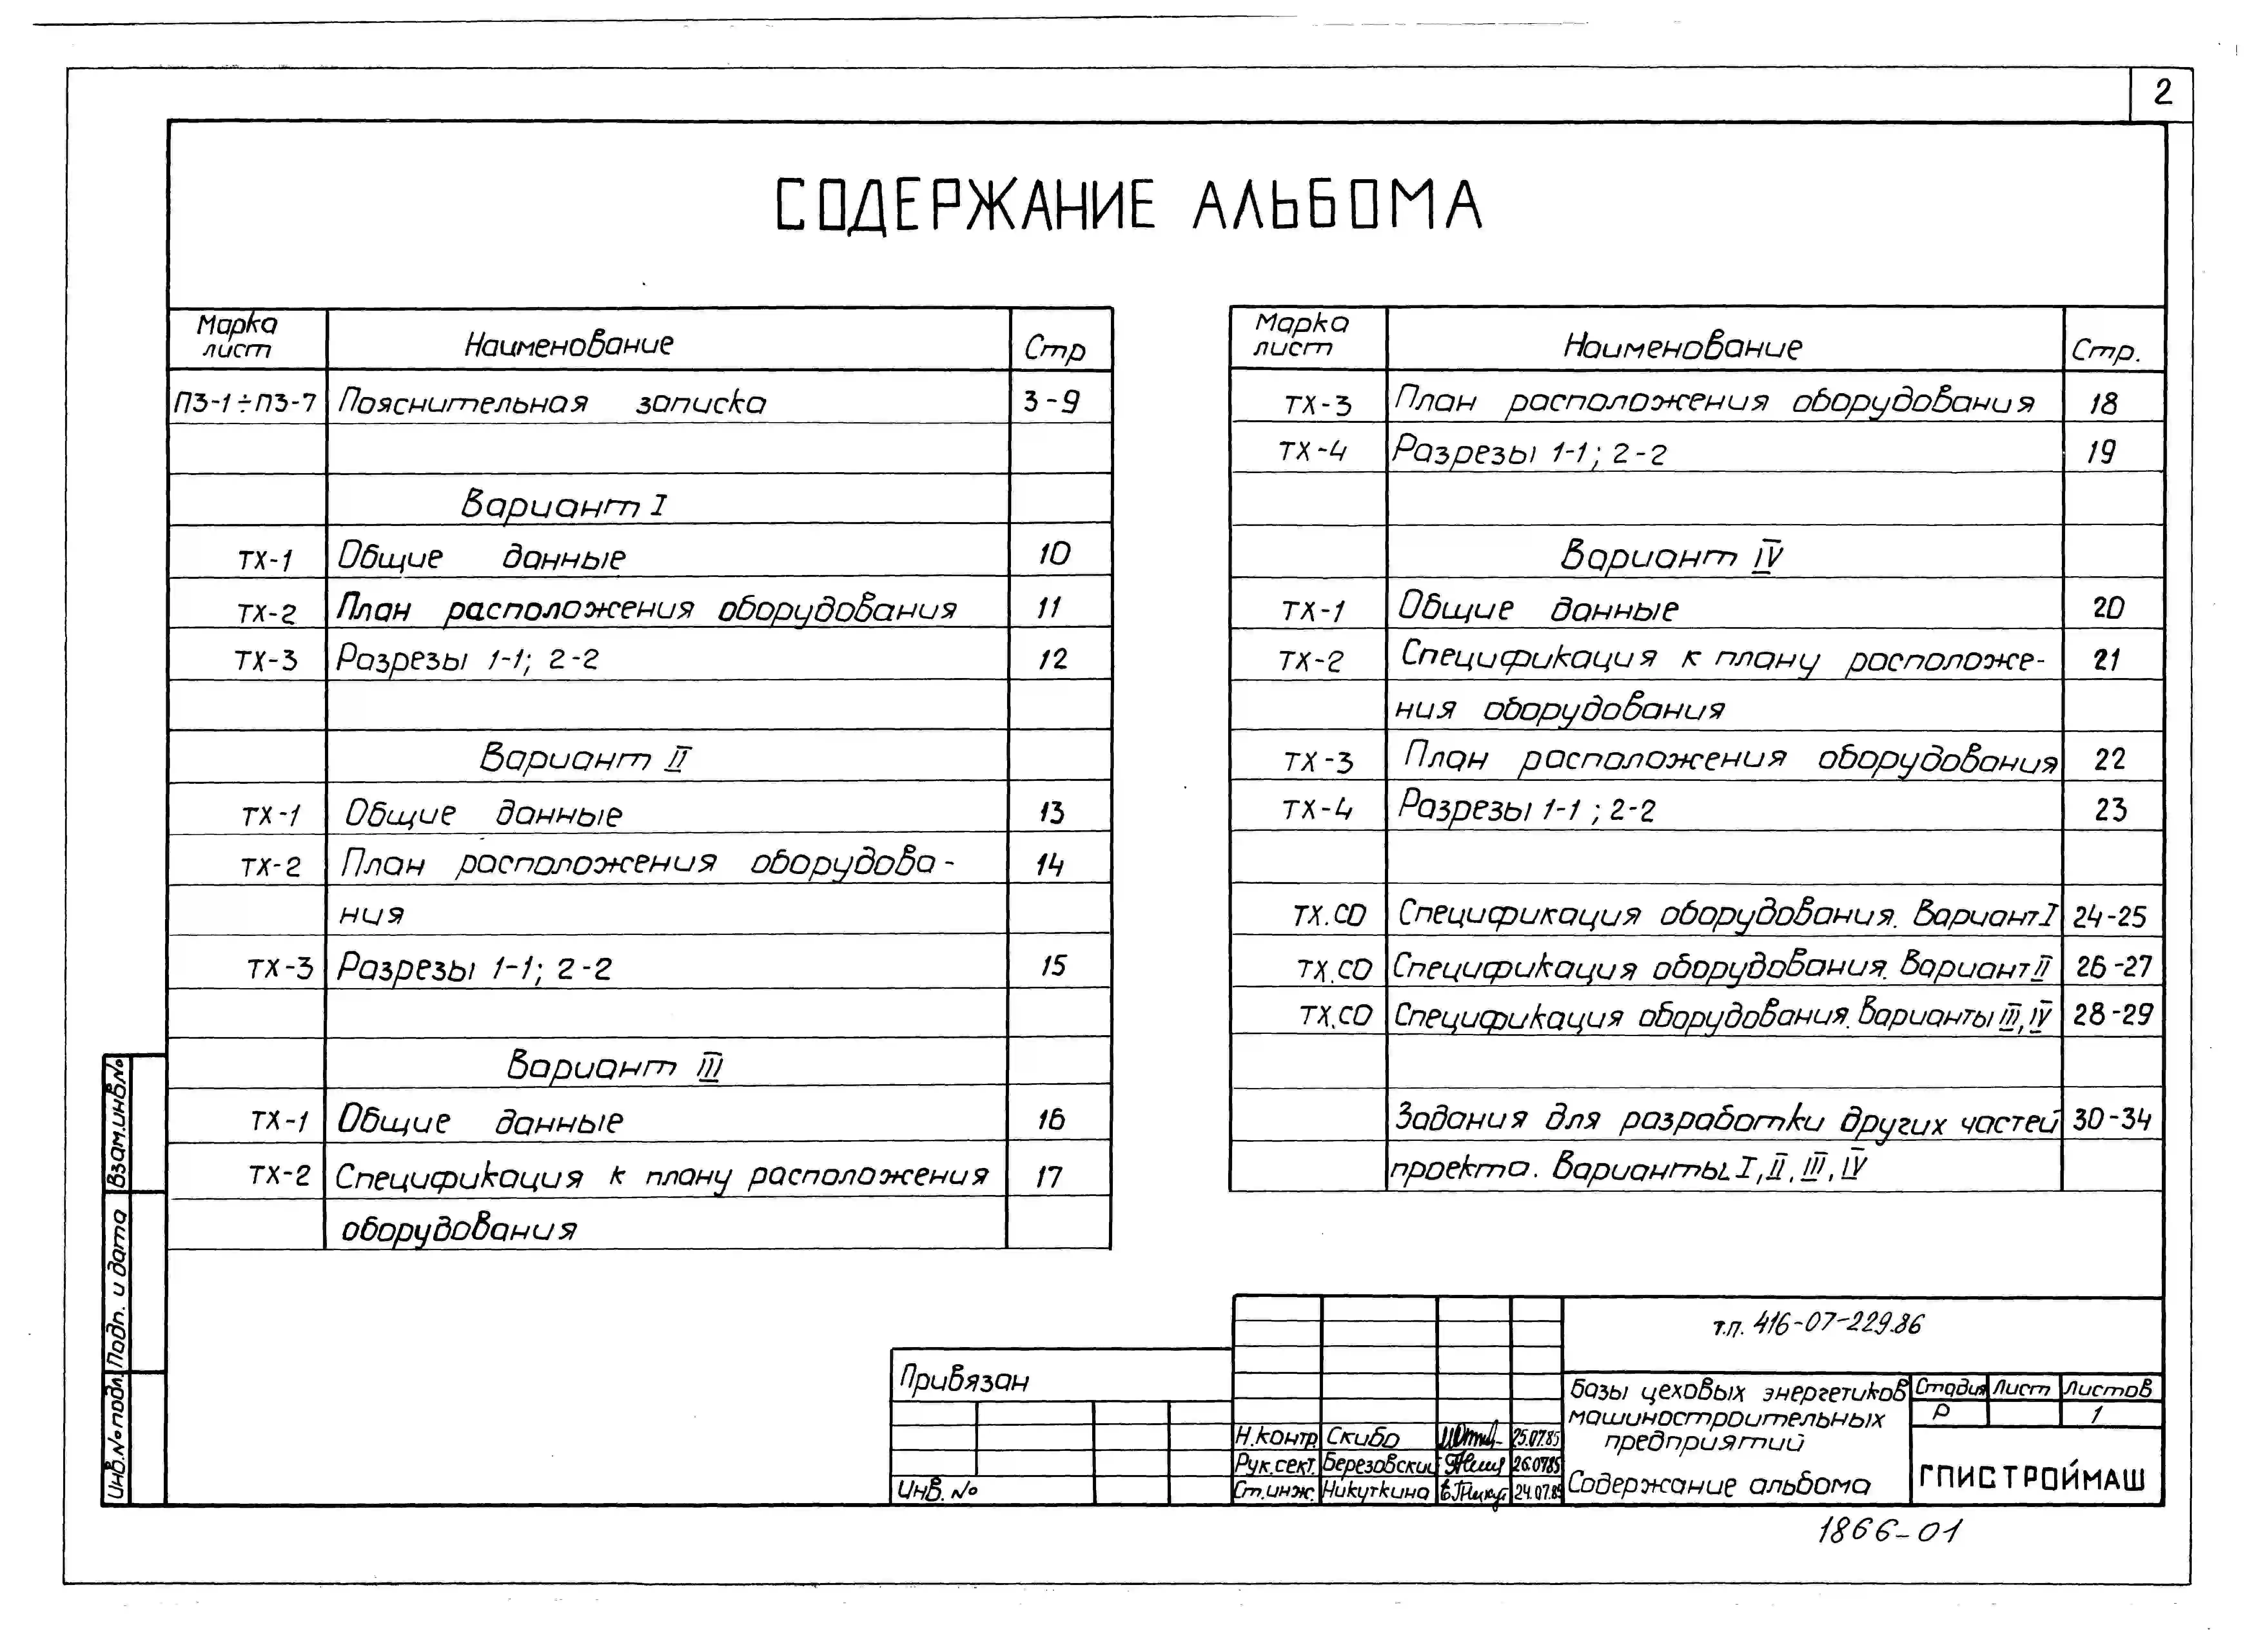 2
СОДЕРЖАНИЕ АЛЬБОМА
Марка лист Наименование Стр
ПЗ-1÷ПЗ-7 Пояснительная записка 3-9
Вариант I
ТХ-1 Общие данные 10
ТХ-2 План расположения оборудования 11
ТХ-3 Разрезы 1-1; 2-2 12
Вариант II
ТХ-1 Общие данные 13
ТХ-2 План расположения оборудова- 14
ния
ТХ-3 Разрезы 1-1; 2-2 15
Вариант III
ТХ-1 Общие данные 16
ТХ-2 Спецификация к плану расположения 17
оборудования
Марка лист Наименование Стр.
ТХ-3 План расположения оборудования 18
ТХ-4 Разрезы 1-1; 2-2 19
Вариант IV
ТХ-1 Общие данные 20
ТХ-2 Спецификация к плану расположе- 21
ния оборудования
ТХ-3 План расположения оборудования 22
ТХ-4 Разрезы 1-1; 2-2 23
ТХ.СО Спецификация оборудования. Вариант I 24-25
ТХ.СО Спецификация оборудования. Вариант II 26-27
ТХ.СО Спецификация оборудования. Варианты III, IV 28-29
Задания для разработки других частей 30-34
проекта. Варианты I, II, III, IV
Взам.инв№
Подп. и дата
Инв.№подл.
Привязан
Инв. №
Н.контр. Скибо 25.07.85
Рук.сект. Березовский 26.07.85
Ст.инж. Никуткина 24.07.85
т.п. 416-07-229.86
Базы цеховых энергетиков
машиностроительных
предприятий
Содержание альбома
Стадия Лист Листов
Р 1
ГПИСТРОЙМАШ
1866-01